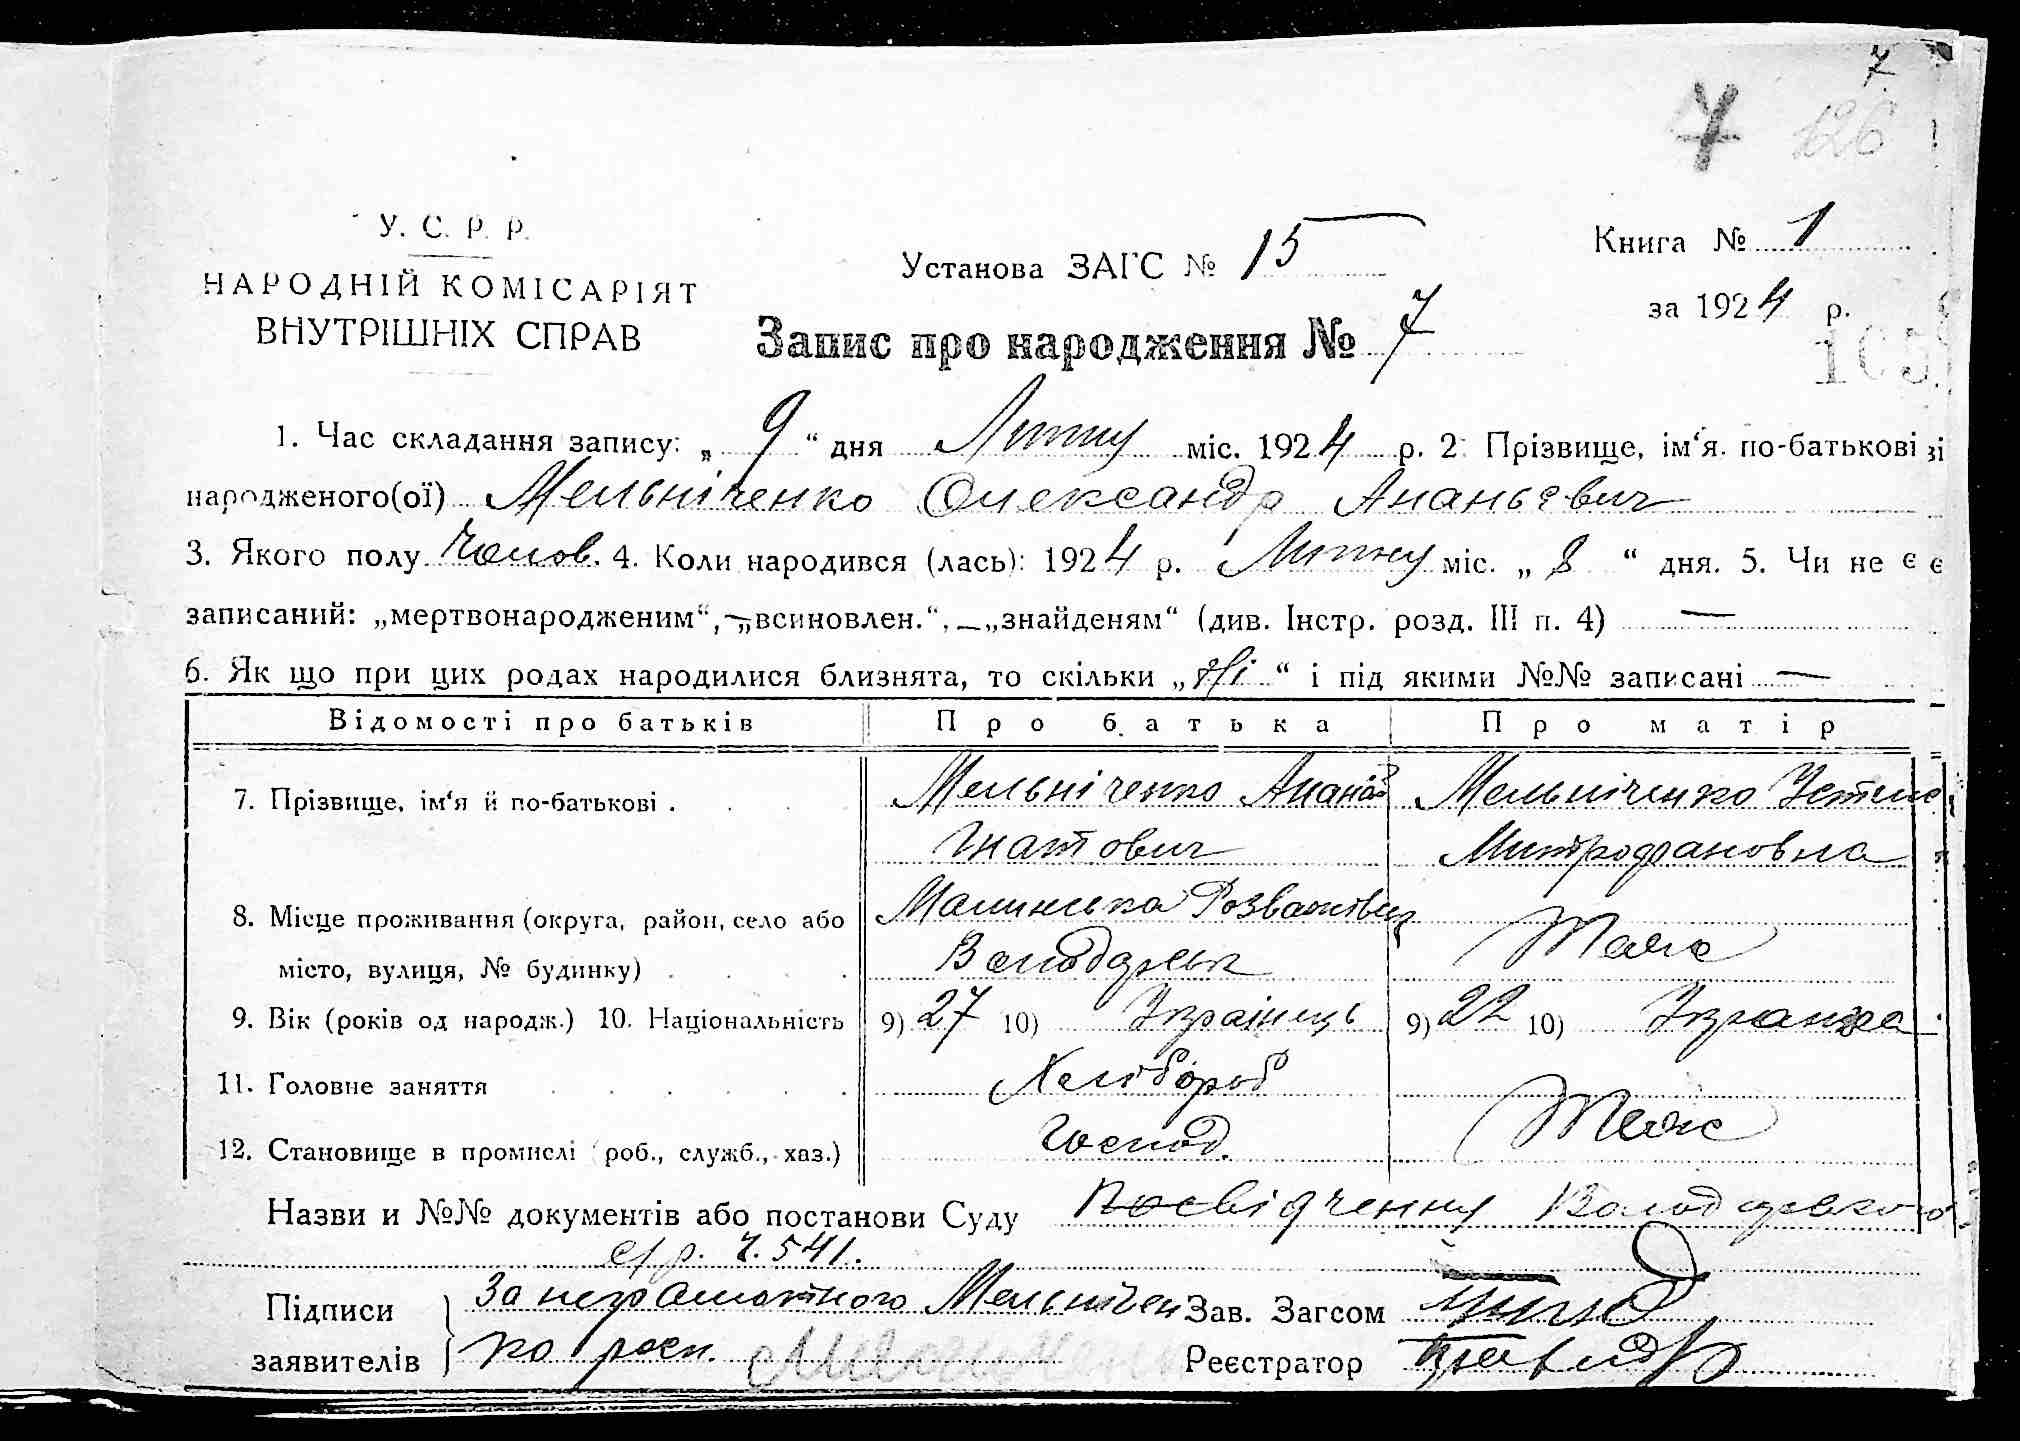 7
7 126
У. С. Р. Р.
НАРОДНІЙ КОМІСАРІЯТ
ВНУТРІШНІХ СПРАВ
Установа ЗАГС № 15
Книга № 1
за 1924 р.
Запис про народження № 7
105
1. Час складання запису: „ 9 “ дня Липня міс. 1924 р. 2. Прізвище, ім‘я. по-батькові зі
народженого(ої) Мельніченко Олександр Ананьевич
3. Якого полу Чолов. 4. Коли народився (лась): 1924 р. Липня міс. „ 8 “ дня. 5. Чи не є є
записаний: „мертвонародженим“, — „всиновлен.“, — „знайденям“ (див. Інстр. розд. III п. 4) —
6. Як що при цих родах народилися близнята, то скільки „ Ні “ і під якими №№ записані —
Відомості про батьків Про батька Про матір
7. Прізвище, ім‘я й по-батькові . Мельніченко Ананій Мельніченко Устина
Гнатович Митрофановна
8. Місце проживання (округа, район, село або Малинська Розважівськ
місто, вулиця, № будинку) Володарськ Теж
9. Вік (років од народж.) 10. Національність 9) 27 10) Українець 9) 22 10) Українка
11. Головне заняття Хлібороб
12. Становище в промислі (роб., служб., хаз.) Господ. Теж
Назви и №№ документів або постанови Суду Посвідчення Володарського
с/р. ч. 541.
Підписи За неграмотного Мельнічен Зав. Загсом
заявителів ко росп. Реєстратор